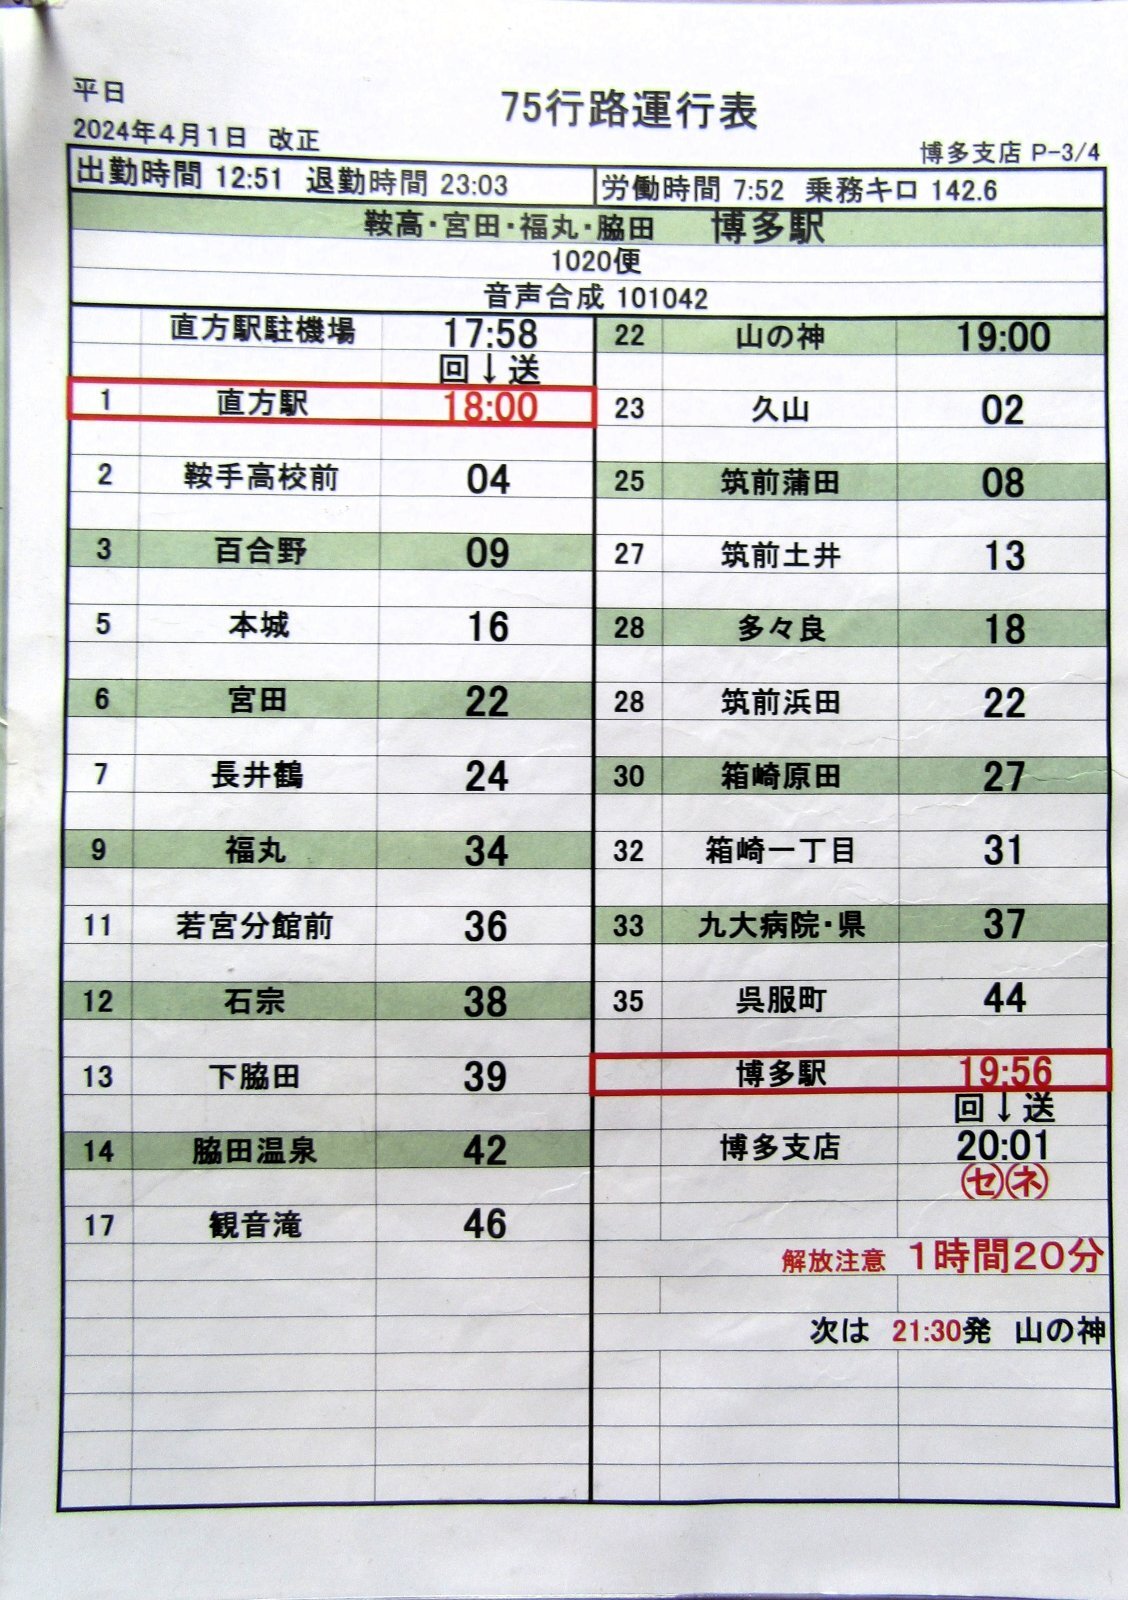 平日
75行路運行表
2024年4月1日 改正
博多支店 P-3/4
出勤時間 12:51 退勤時間 23:03
労働時間 7:52 乗務キロ 142.6
鞍高・宮田・福丸・脇田 博多駅
1020便
音声合成 101042
直方駅駐機場 17:58
回↓送
1 直方駅 18:00
2 鞍手高校前 04
3 百合野 09
5 本城 16
6 宮田 22
7 長井鶴 24
9 福丸 34
11 若宮分館前 36
12 石宗 38
13 下脇田 39
14 脇田温泉 42
17 観音滝 46
22 山の神 19:00
23 久山 02
25 筑前蒲田 08
27 筑前土井 13
28 多々良 18
28 筑前浜田 22
30 箱崎原田 27
32 箱崎一丁目 31
33 九大病院・県 37
35 呉服町 44
博多駅 19:56
回↓送
博多支店 20:01
㋝㋧
解放注意 1時間20分
次は 21:30発 山の神